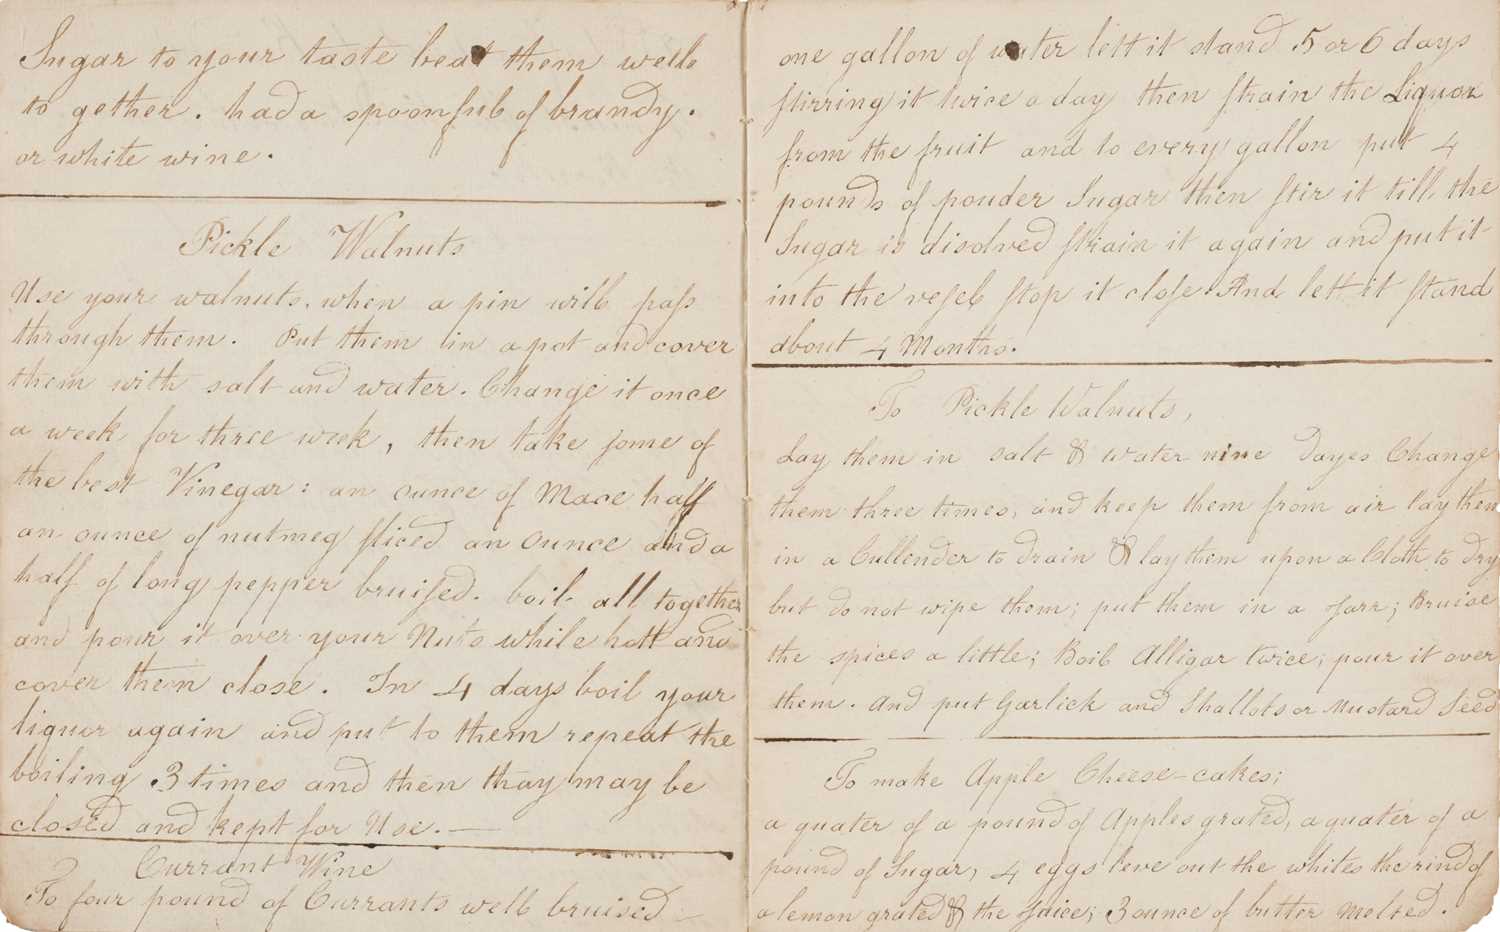 Sugar to your taste beat them well
to gether. had a spoonful of brandy.
or white wine.
Pickle Walnuts
Use your walnuts. when a pin will pass
through them. Put them in a pot and cover
them with salt and water. Change it once
a week for three week, then take some of
the best Vinegar: an ounce of Mace half
an ounce of nutmeg sliced an ounce and a
half of long pepper bruised. boil all together
and pour it over your Nuts while hott and
cover them close. In 4 days boil your
liquor again and put to them repeat the
boiling 3 times and then thay may be
closed and kept for Use. —
Currant Wine
To four pound of Currants well bruised
one gallon of water lett it stand 5 or 6 days
stirring it twice a day then strain the Liquor
from the fruit and to every gallon put 4
pounds of pouder Sugar then stir it till the
Sugar is disolved strain it again and put it
into the vesel stop it close. And lett it stand
about 4 Months.
To Pickle Walnuts,
Lay them in salt & water nine Dayes Change
them three times, and keep them from air lay them
in a Cullender to drain & lay them upon a Cloth to dry
but do not wipe them; put them in a Jarr; Bruise
the spices a little; Boil Alligar twice; pour it over
them. And put Garlick and Shallots or Mustard Seed
To make Apple Cheese-cakes;
a quater of a pound of Apples grated, a quater of a
pound of Sugar, 4 eggs leve out the whites the rind of
a lemon grated & the Juice; 3 ounce of butter Melted.